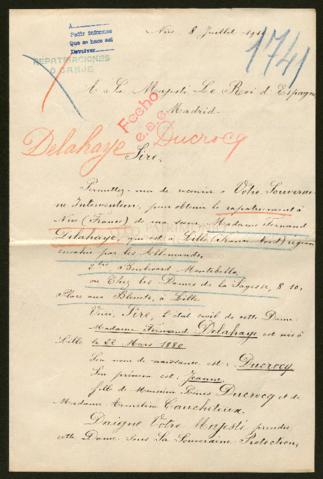 Nice 8 Juillet 1916
A
Pedir Informes
Que se hace así
Devolver
REPATRIACIONES
O CANJE
1741
A Sa Majesté Le Roi d'Espagne
Madrid
Fecho
Delahaye Ducrocq
Sire,
Permettez-moi de recourir à Votre Souveraine
Intervention, pour obtenir le rapatriement à
Nice (France) de ma sœur, Madame Fernand
Delahaye, qui est à Lille (France Nord) région
envahie par les Allemands,
Boulevard Montebello
ou Chez les Dames de la Sagesse, 8, 10,
Place aux Bleuets, à Lille
Voici, Sire, l'état civil de cette Dame:
Madame Fernand Delahaye est née à
Lille le 22 Mars 1880
Son nom de naissance est: Ducrocq
Son prénom est: Jeanne,
fille de Monsieur Ducrocq et de
Madame Caucheteux.
Daigne Votre Majesté prendre
cette Dame sous Sa Souveraine Protection,